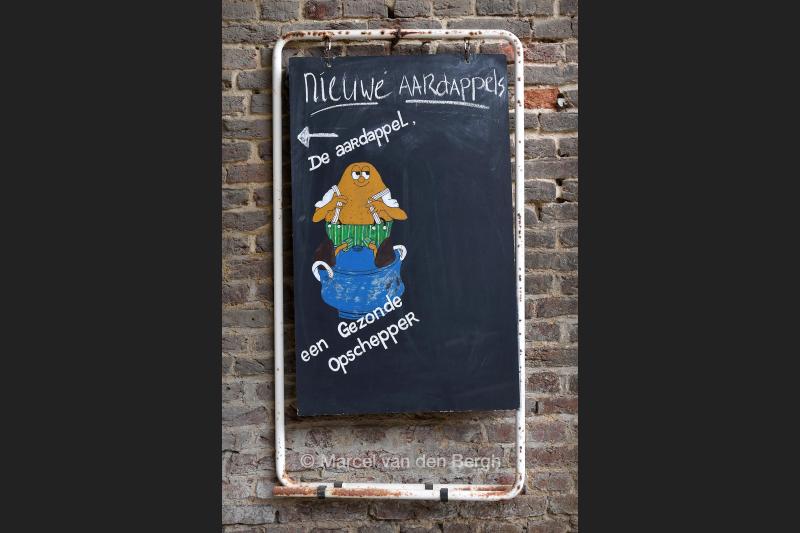 Nieuwe AARdAppels
De aardappel,
een Gezonde
Opschepper
© Marcel van den Bergh